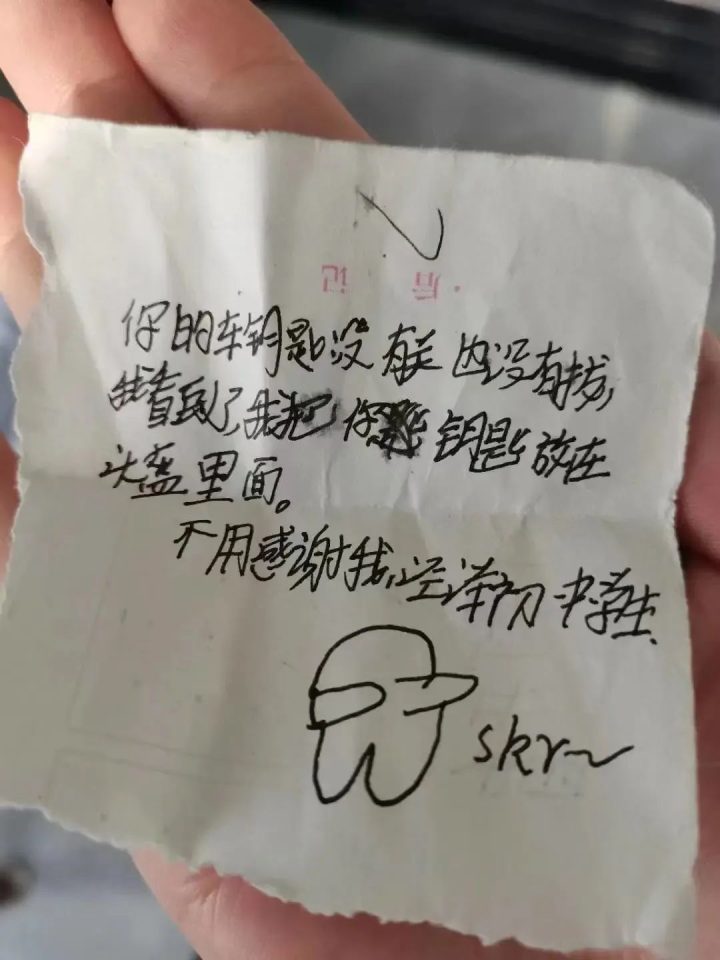 你的车钥匙没有关也没有拔,
我看到了,我把你钥匙放在
头盔里面。
不用感谢我,泽初中学生.
skr~